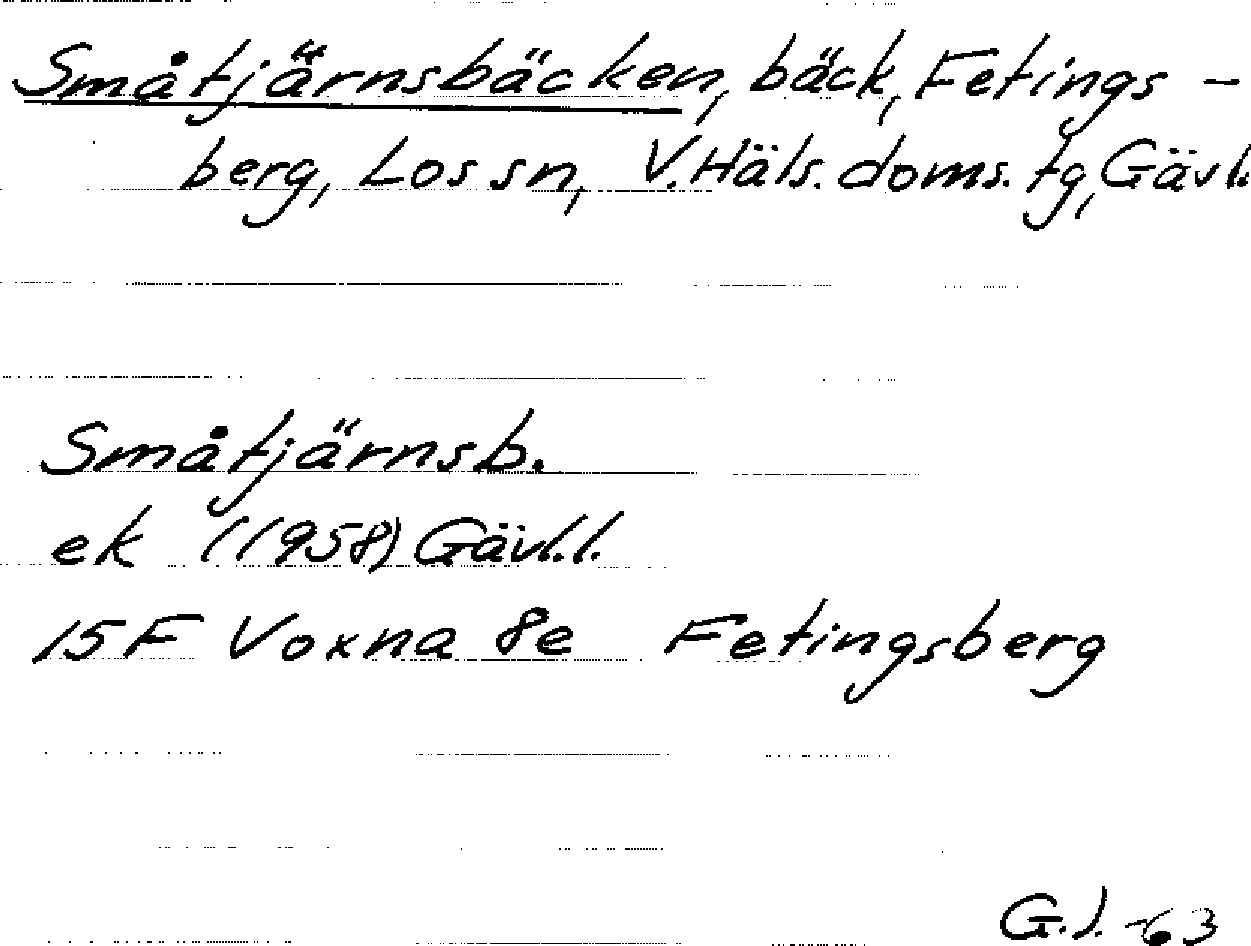 Småtjärnsbäcken, bäck, Fetings-
berg, Los sn, V. Häls. doms. tg, Gävl.
Småtjärnsb.
ek (1958) Gävl.l.
15F Voxna 8e Fetingsberg
G.J. -63